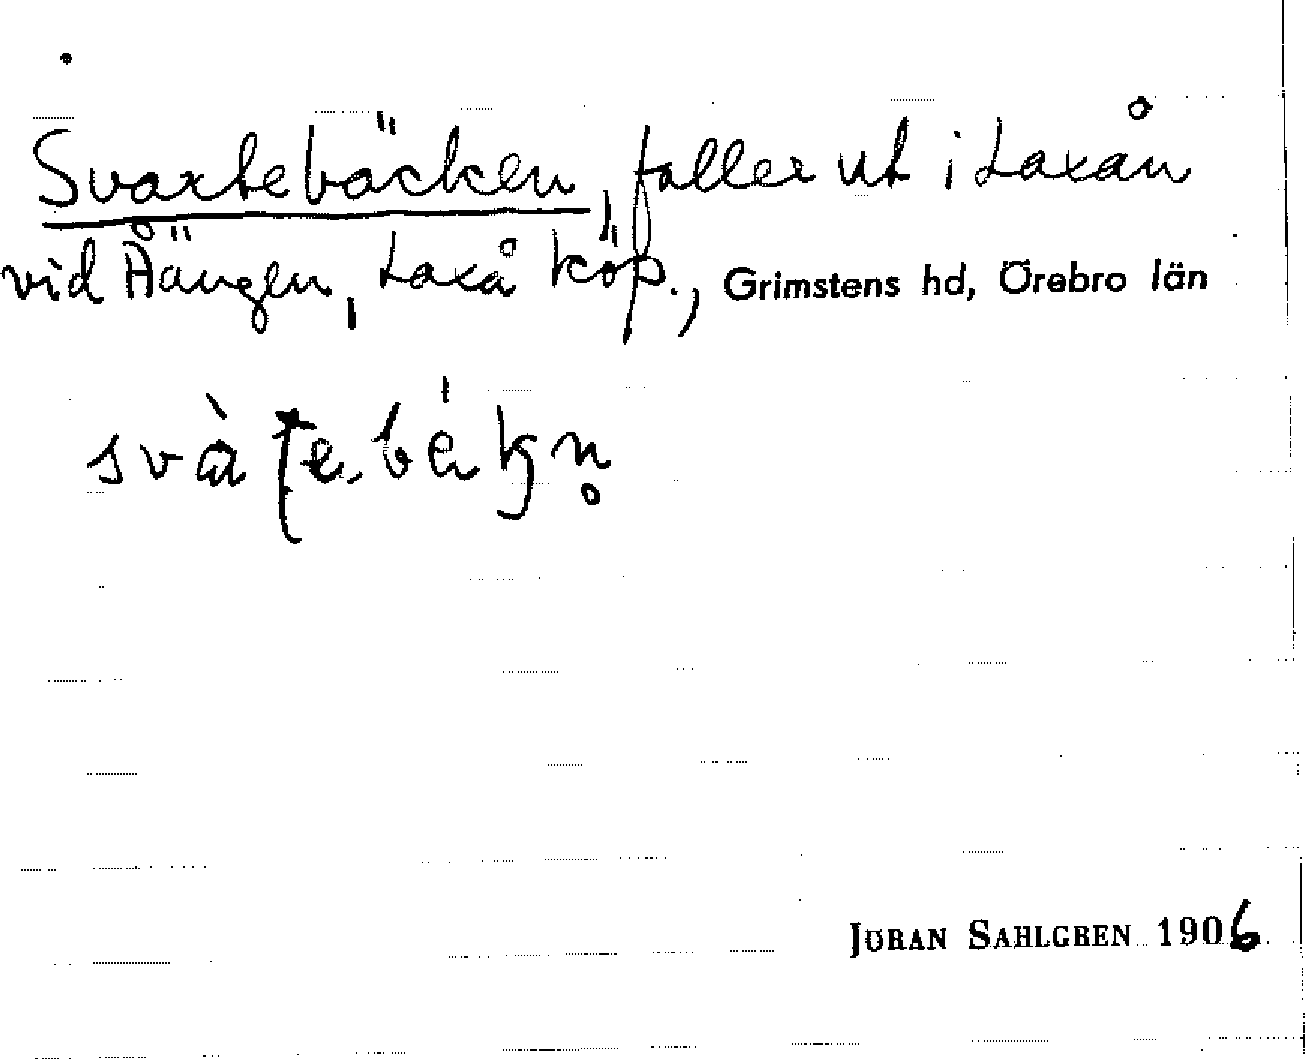 Svartebäcken, faller ut i Laxån
vid Åängen, Laxå köp., Grimstens hd, Örebro län
JÖRAN SAHLGREN 1906